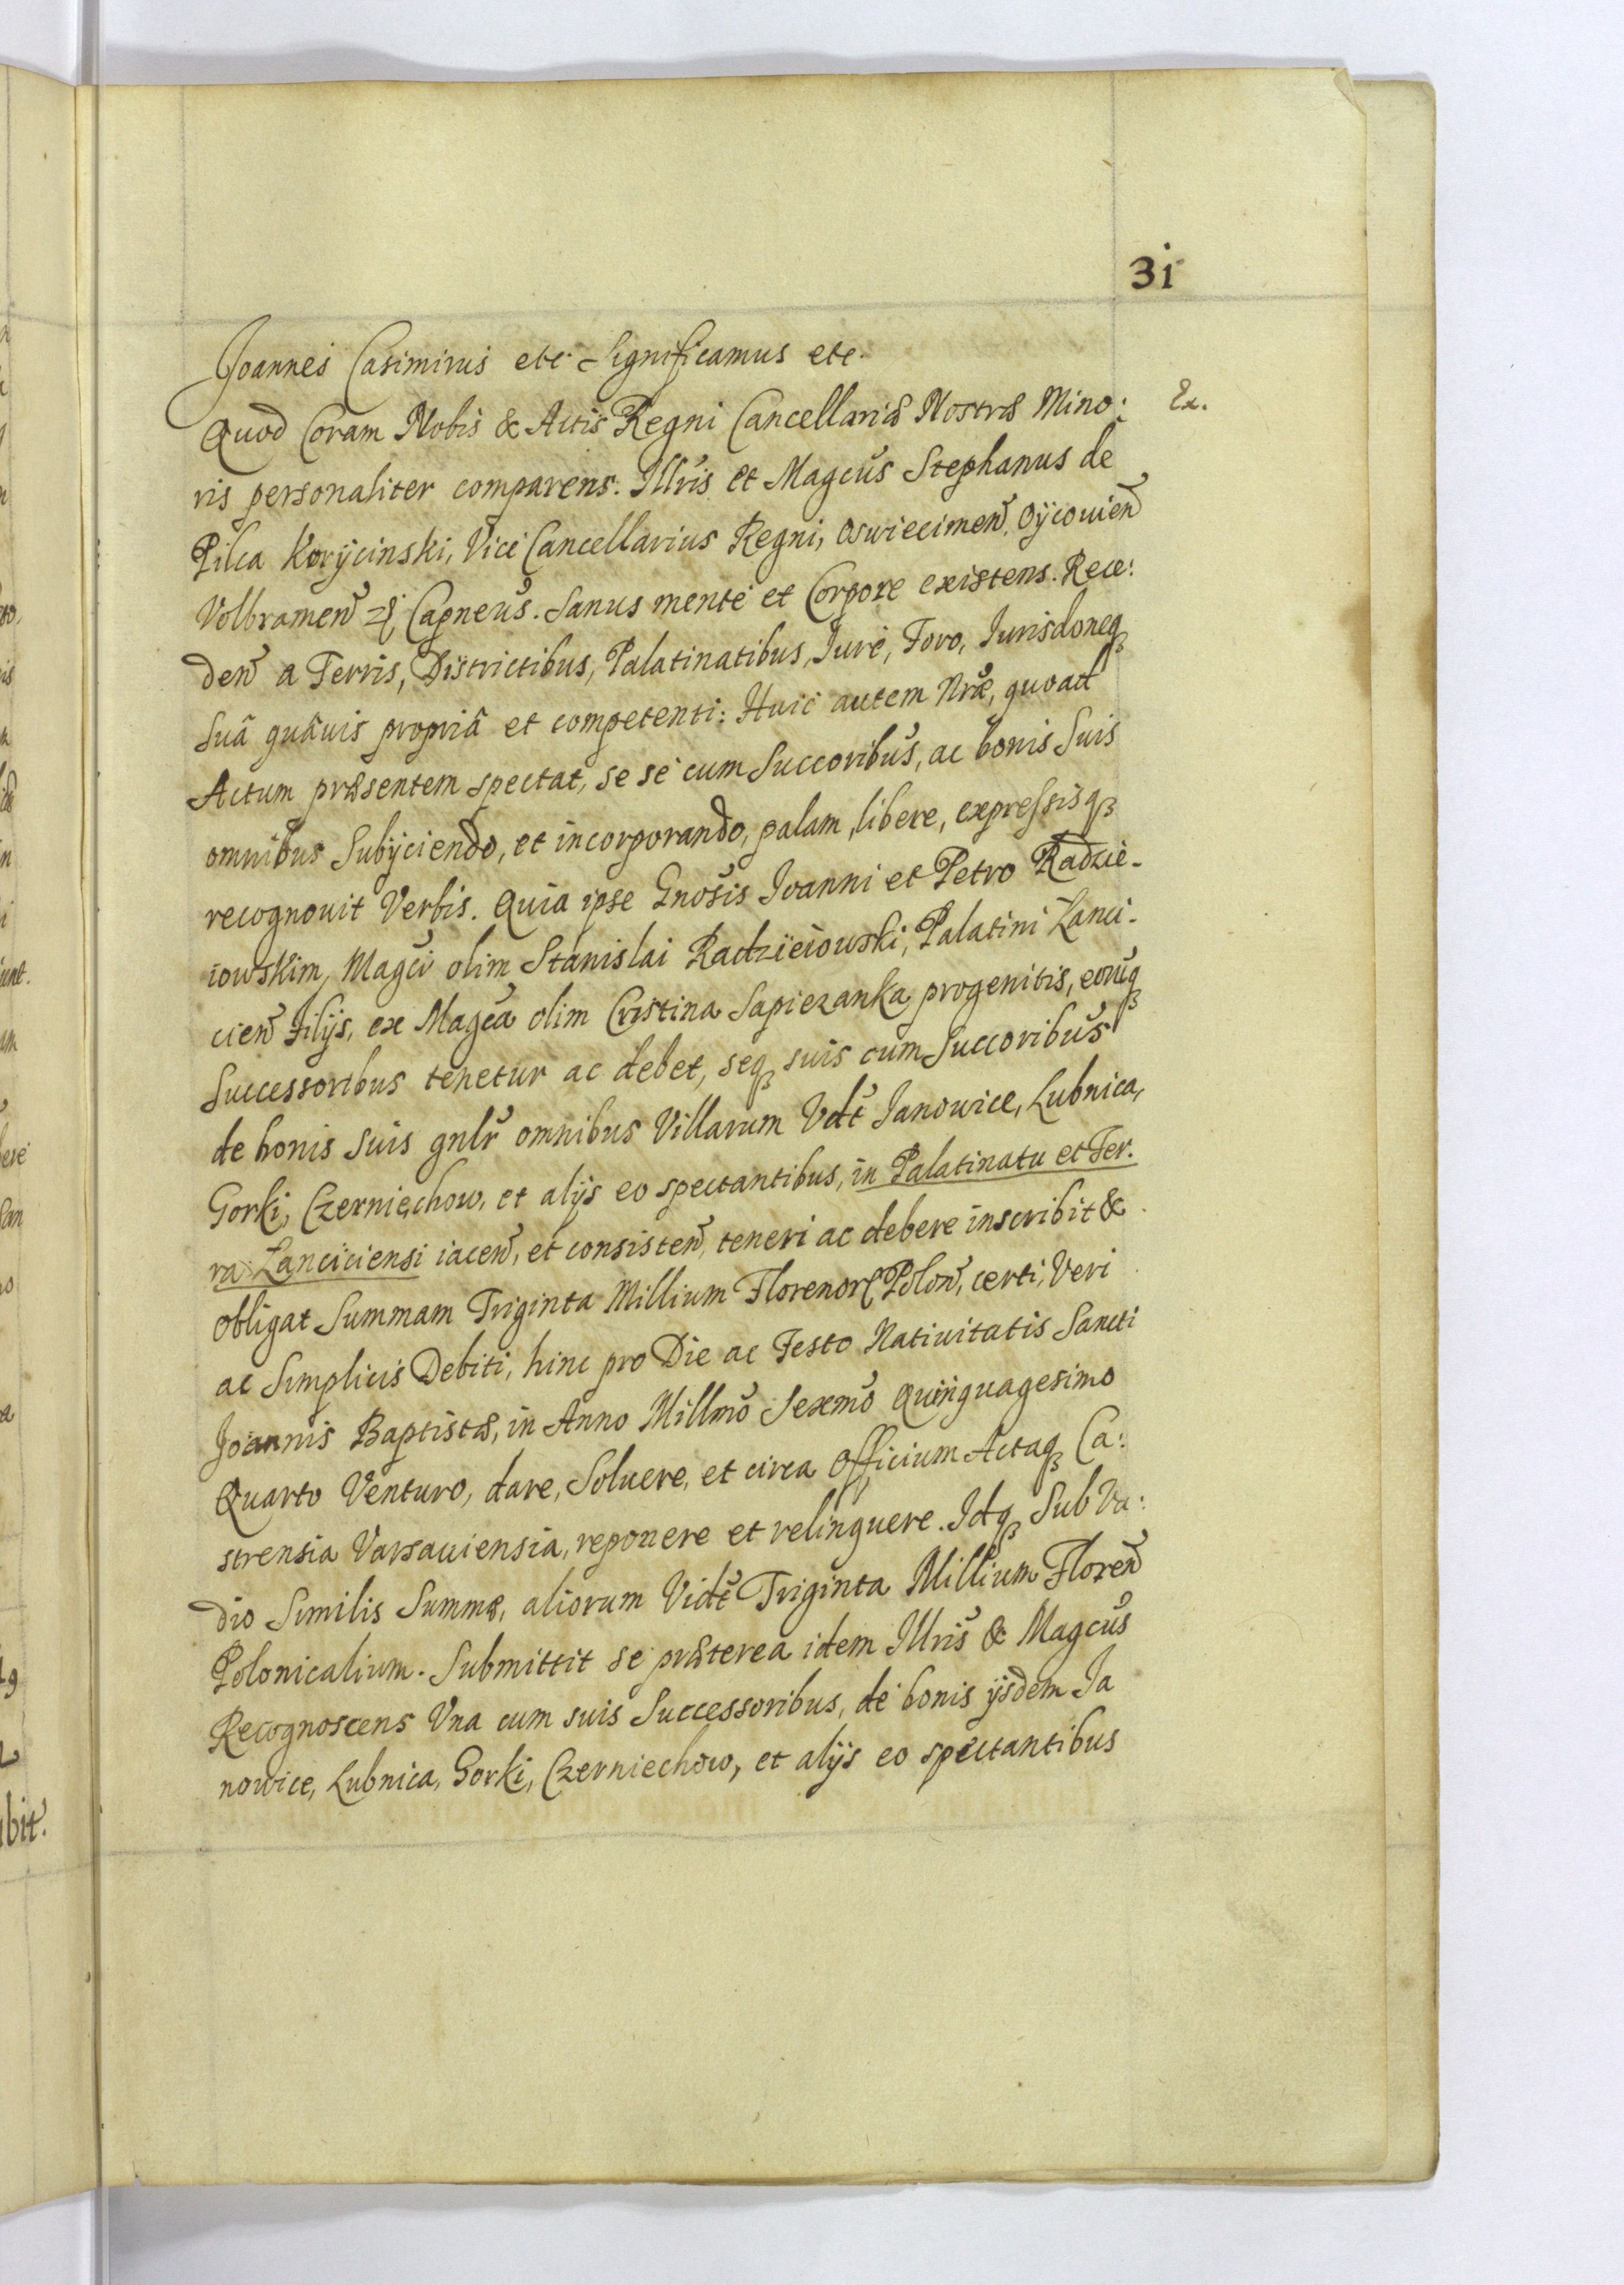 31
Joannes Casimirus etc. Significamus etc.
Quod Coram Nobis & Actis Regni Cancellariæ Nostræ Mino: Ex.
ris personaliter comparens. Illris et Magcus Stephanus de
Pilca Korÿcinski, Vice Cancellarius Regni, Oswiecimen̄, Oÿcouien̄
Volbramen̄ Capneus. Sanus mente et Corpore existens. Rece:
den̄ a Terris, Districtibus, Palatinatibus, Jure, Foro, Jurisdoneqꝫ
Suâ quâuis propriâ et competenti: Huic autem Nræ, quoad
Actum præsentem spectat, se se cum Succoribus, ac bonis Suis
omnibus Subÿciendo, et incorporando, palam, libere, expressisqꝫ
recognouit Verbis. Quia ipse Gnosis Joanni et Petro Radzie-
iowskim, Magci olim Stanislai Radzieiowski, Palatini Lanci-
cien̄ Filÿs, ex Magca olim Cristina Sapiezanka progenitis, eorūqꝫ
Successoribus tenetur ac debet, seqꝫ suis cum Succoribus
de bonis suis gnlr omnibus Villarum Vdt Janowice, Lubnica,
Gorki, Czerniechow, et alÿs eo spectantibus, in Palatinatu et Ter:
ra Lanciciensi iacen̄, et consisten̄, teneri ac debere inscribit &
obligat Summam Triginta Millium Florenor Polon̄, certi, Veri
ac Simplicis Debiti, hinc pro Die ac Festo Natiuitatis Sancti
Joannis Baptistæ, in Anno Millmo Sexmo Quinquagesimo
Quarto Venturo, dare, Soluere, et circa Officium Actaqꝫ Ca:
strensia Varsauiensia, reponere et relinquere. Idqꝫ Sub Va:
dio Similis Summæ, aliorum Vidt Triginta Millium Floren̄
Polonicalium. Submittit se præterea idem Illris & Magcus
Recognoscens Vna cum suis Successoribus, de bonis ÿsdem Ja
nowice, Lubnica, Gorki, Czerniechow, et alÿs eo spectantibus